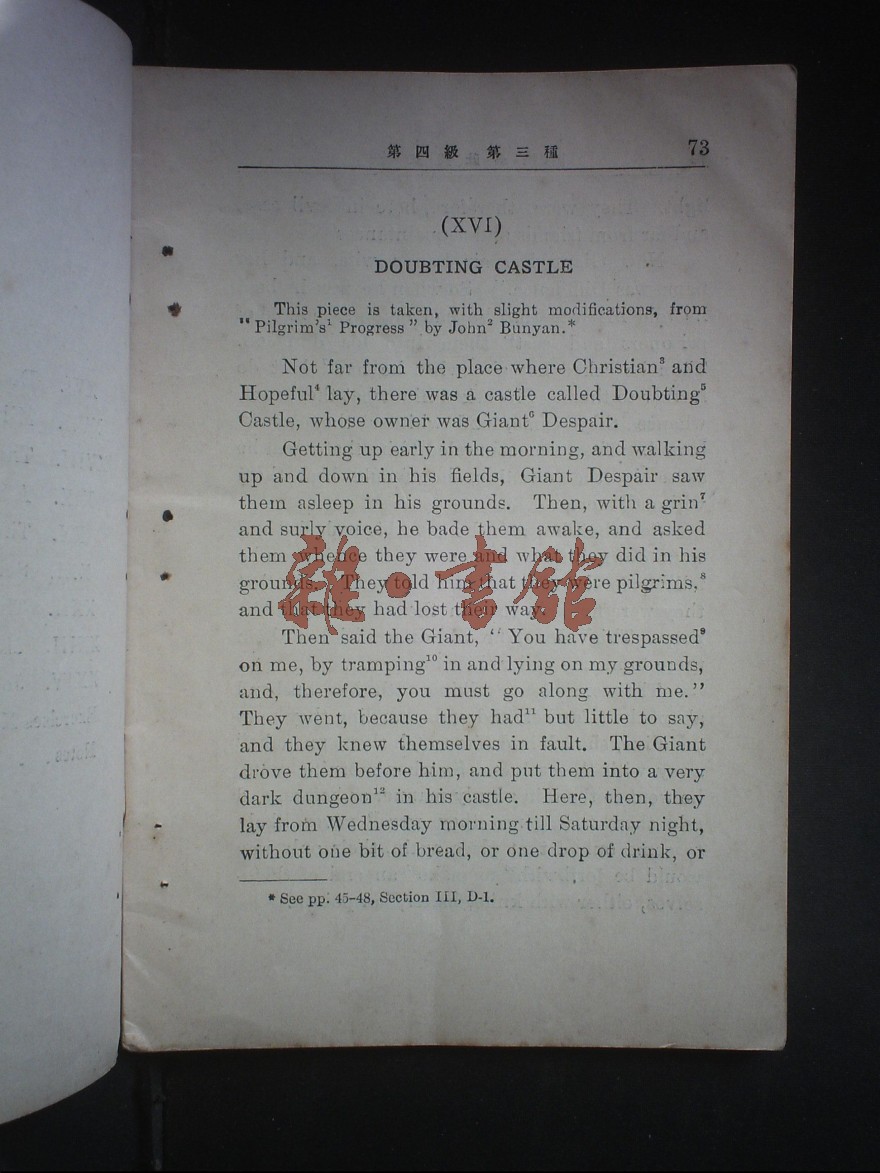 第四級 第三種 73
(XVI)
DOUBTING CASTLE
This piece is taken, with slight modifications, from
"Pilgrim's¹ Progress" by John² Bunyan.*
Not far from the place where Christian³ and
Hopeful⁴ lay, there was a castle called Doubting⁵
Castle, whose owner was Giant⁶ Despair.
Getting up early in the morning, and walking
up and down in his fields, Giant Despair saw
them asleep in his grounds. Then, with a grin⁷
and surly voice, he bade them awake, and asked
them whence they were and what they did in his
grounds. They told him that they were pilgrims,⁸
and that they had lost their way.
Then said the Giant, "You have trespassed⁹
on me, by tramping¹⁰ in and lying on my grounds,
and, therefore, you must go along with me."
They went, because they had¹¹ but little to say,
and they knew themselves in fault. The Giant
drove them before him, and put them into a very
dark dungeon¹² in his castle. Here, then, they
lay from Wednesday morning till Saturday night,
without one bit of bread, or one drop of drink, or
* See pp. 45-48, Section III, D-1.
雜·書館